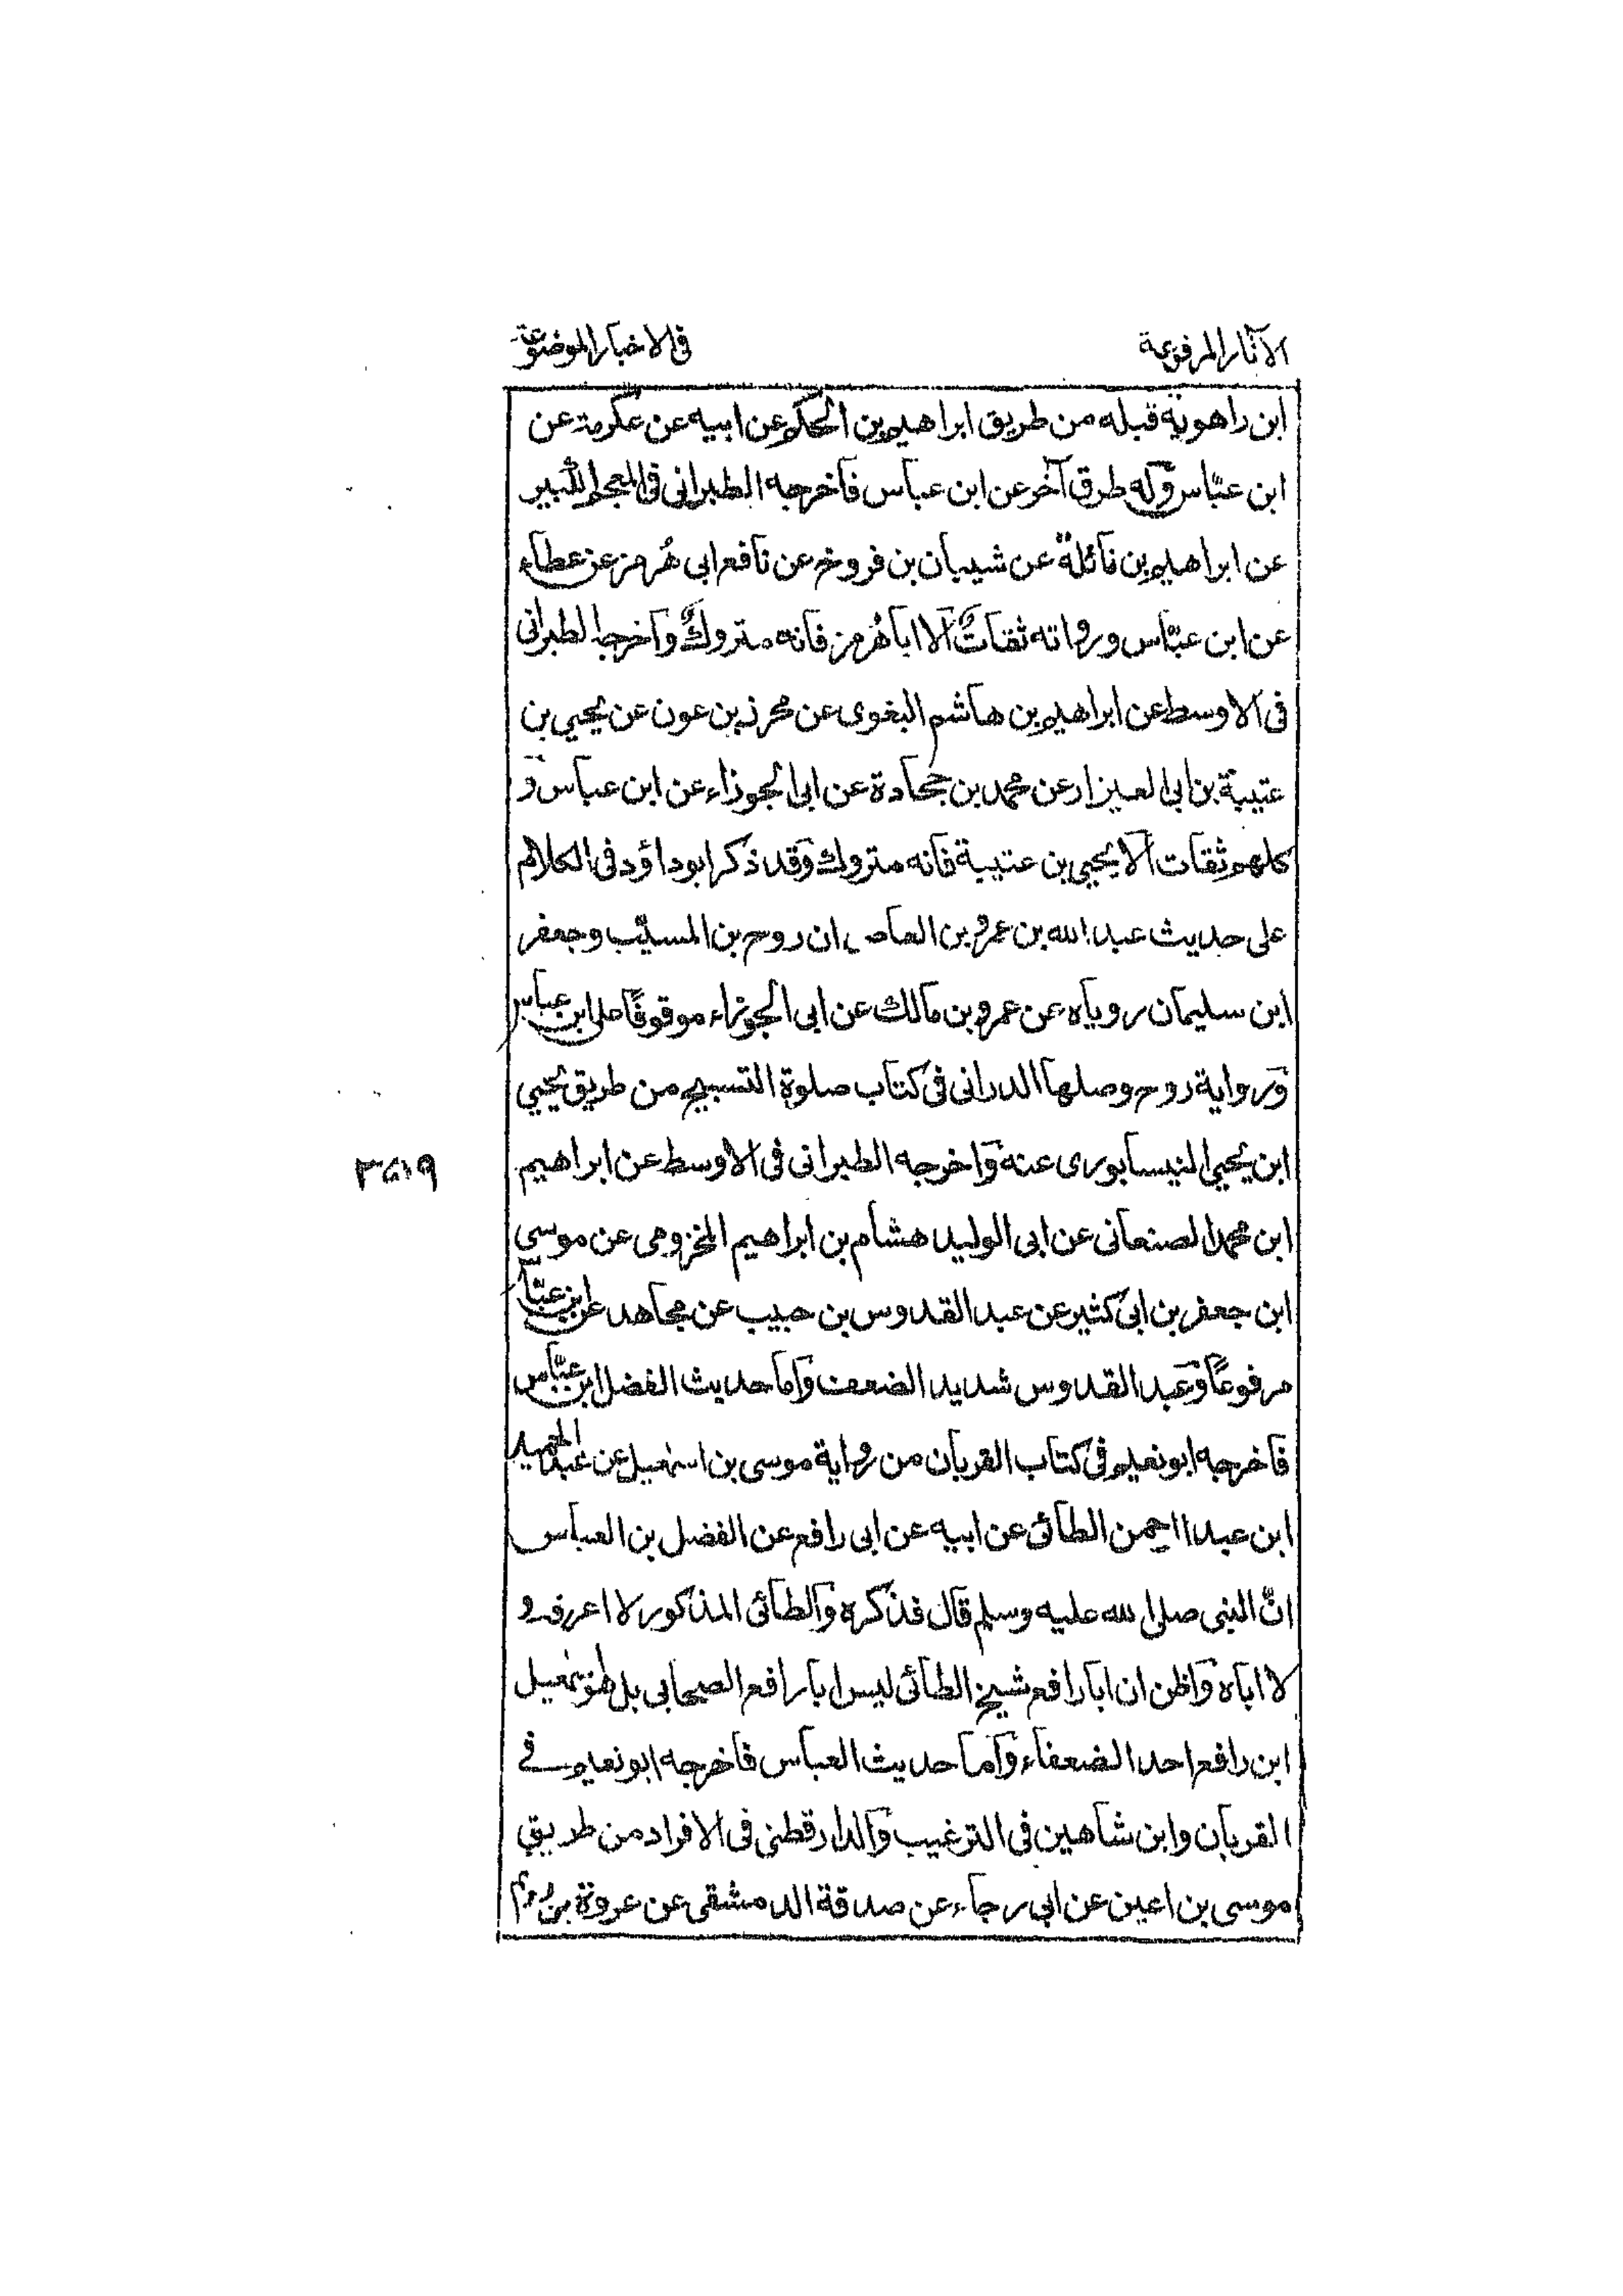 الآثار المرفوعة
فى الاخبار الموضوعة
ابن راهويه قبله من طريق ابراهيم بن الحكم عن ابيه عن عكرمة عن
ابن عبّاس وله طرق آخر عن ابن عباس فأخرجه الطبرانى فى المعجم الكبير
عن ابراهيم بن نائلة عن شيبان بن فروخ عن نافع ابى هُرمز عن عطاء
عن ابن عبّاس ورواته ثقات الا اباهُرمز فانه متروك وأخرجه الطبرانى
فى الاوسط عن ابراهيم بن هاشم البغوى عن محرز بن عون عن يحيى بن
عتيبة بن ابى العيزار عن محمد بن جحادة عن ابى الجوزاء عن ابن عباس و
كلهم ثقات الا يحيى بن عتيبة فانه متروك وقد ذكر ابوداؤد فى الكلام
على حديث عبد الله بن عمرو بن العاص ان روح بن المسيّب وجعفر
ابن سليمان روياه عن عمرو بن مالك عن ابى الجوزاء موقوفًا على ابن عباس
ورواية روح وصلها الدرانى فى كتاب صلوة التسبيح من طريق يحيى
ابن يحيى النيسابورى عنه واخرجه الطبرانى فى الاوسط عن ابراهيم
٣٤١٩
ابن محمد الصنعانى عن ابى الوليد هشام بن ابراهيم المخزومى عن موسى
ابن جعفر بن ابى كثير عن عبد القدوس بن حبيب عن مجاهد عن ابن عبّا
مرفوعًا وعبد القدوس شديد الضعف واما حديث الفضل ابن عبّاس
فاخرجه ابونعيم فى كتاب القربان من رواية موسى بن اسمٰعيل عن عبد الحميد
ابن عبد الرحمن الطائى عن ابيه عن ابى رافع عن الفضل بن العباس
انّ النبى صلى الله عليه وسلم قال فذكره والطائى المذكور لا اعرفه و
لا اباه واظن ان ابا رافع شيخ الطائى ليس ابا رافع الصحابى بل هو اسمٰعيل
ابن رافع احد الضعفاء واما حديث العباس فاخرجه ابونعيم فى
القربان وابن شاهين فى الترغيب والدارقطنى فى الافراد من طريق
موسى بن اعين عن ابى رجاء عن صدقة الدمشقى عن عروة بن رُويم